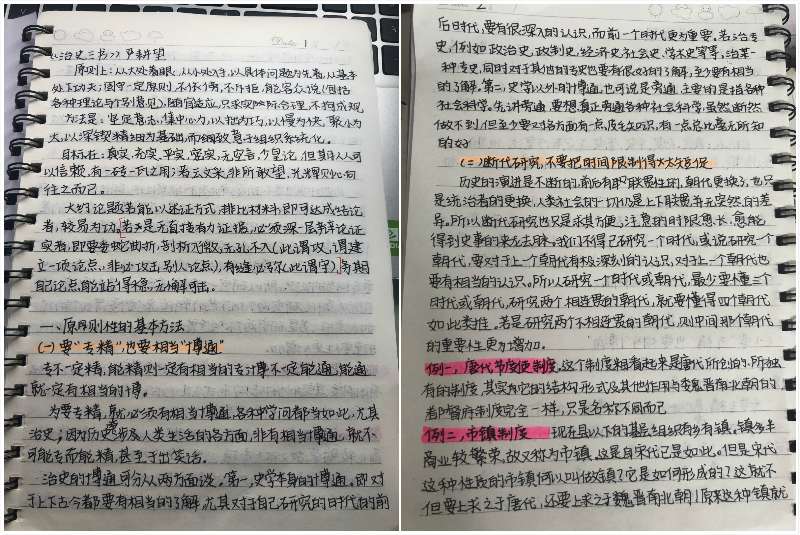 《治史三书》 严耕望
原则上：从大处着眼，从小处入手，以具体问题为先着，从基本
处下功夫；固守一定原则，不依傍，不斥拒，能容众说（包括
各种理论与个别意见），随宜适应，只求实际合理，不拘成规。
方法是：坚定意志，集中心力，以拙为巧，以慢为快，聚小为
大，以深锲精细为基础，而致意于组织系统化。
目标在：真实，充实，平实，密实，无空言，少皇论，但期人人可
以信赖，有一砖一瓦之用；若云文采，非所敢望，光辉则心向
往之而已。
大约论题若能以述证方式，排比材料，即可达成结论
者，较易为功。若是无直接有力证据，必须深一层辩论证
实者，即要委蛇曲折，剖析入微，无孔不入（此谓攻，谓建
立一项论点，非必攻击别人论点），有缝必弥（此谓守），务期
自己论点能站得稳，无懈可击。
一、原则性的基本方法
（一）要"专精"，也要相当"博通"
专不一定精，能精则一定有相当的专；博不一定能通，能通
就一定有相当的博。
为要专精，就必须有相当博通。各种学问都当如此，尤其
治史；因为历史牵涉人类生活的各方面，非有相当博通，就不
可能专而能精，甚至于出笑话。
治史的博通可分从两方面谈。第一，史学本身的博通。即对
于上下古今都要有相当的了解，尤其对于自己研究的时代的前
2
后时代，要有很深入的认识，而前一个时代更为重要。若治专
史，例如政治史，政制史，经济史，社会史，学术史等等，治某一
种专史，同时对于其他的专史也要有很好的了解，至少要有相当
的了解。第二，史学以外的博通，也可说是旁通。主要的是指各种
社会科学。先讲旁通，要想真正贯通各种社会科学，虽然断然
做不到，但至少要对各方面有一点皮毛知识，有一点总比毫无所知
的好
（二）断代研究，不要把时间限制得太短促
历史的演进是不断的，前后有职联贯性的，朝代更换了，也只
是统治者的更换，人类社会的一切仍是上下联贯，并无突然的差
异。所以断代研究也只是求其方便，注意的时限愈长，愈能
得到史事的来龙去脉。我们不得已研究一个时代，或说研究一个
朝代，要对于上一个朝代有极深刻的认识，对于下一个朝代也
要有相当的认识。所以研究一个时代或朝代，最少要懂三个
时代或朝代，研究两个相连贯的朝代，就要懂得四个朝代，
如此类推。若是研究两个不相连贯的朝代，则中间那个朝代
的重要性更为增加。
例一，唐代节度使制度，这个制度粗看起来是唐代所创的，所独
有的制度，其实，它的结构形式及其他作用与魏晋南北朝的
都督府制度完全一样，只是名称不同而已
例二，市镇制度 现在县以下的基层组织有乡有镇，镇多半
商业较繁荣，故又称为市镇，这是自宋代已是如此。但是宋代
这种性质的市镇何以叫做镇？它是如何形成的？这就不
但要上求之于唐代，还要上求之于魏晋南北朝！原来这种镇就